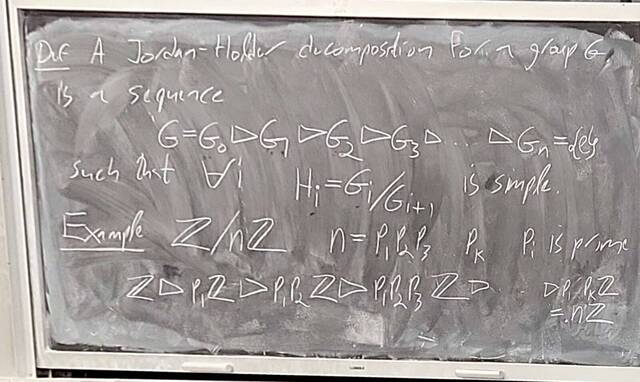 Def A Jordan-Holder decomposition for a group G,
is a sequence
G = G₀ ▷ G₁ ▷ G₂ ▷ G₃ ▷ ... ▷ Gₙ = {e}
such that ∀i Hᵢ = Gᵢ/Gᵢ₊₁ is simple.
Example ℤ/nℤ n = P₁P₂P₃ Pₖ Pᵢ is prime
ℤ ▷ P₁ℤ ▷ P₁P₂ℤ ▷ P₁P₂P₃ℤ ▷ ▷ P₁ Pₖℤ
= nℤ